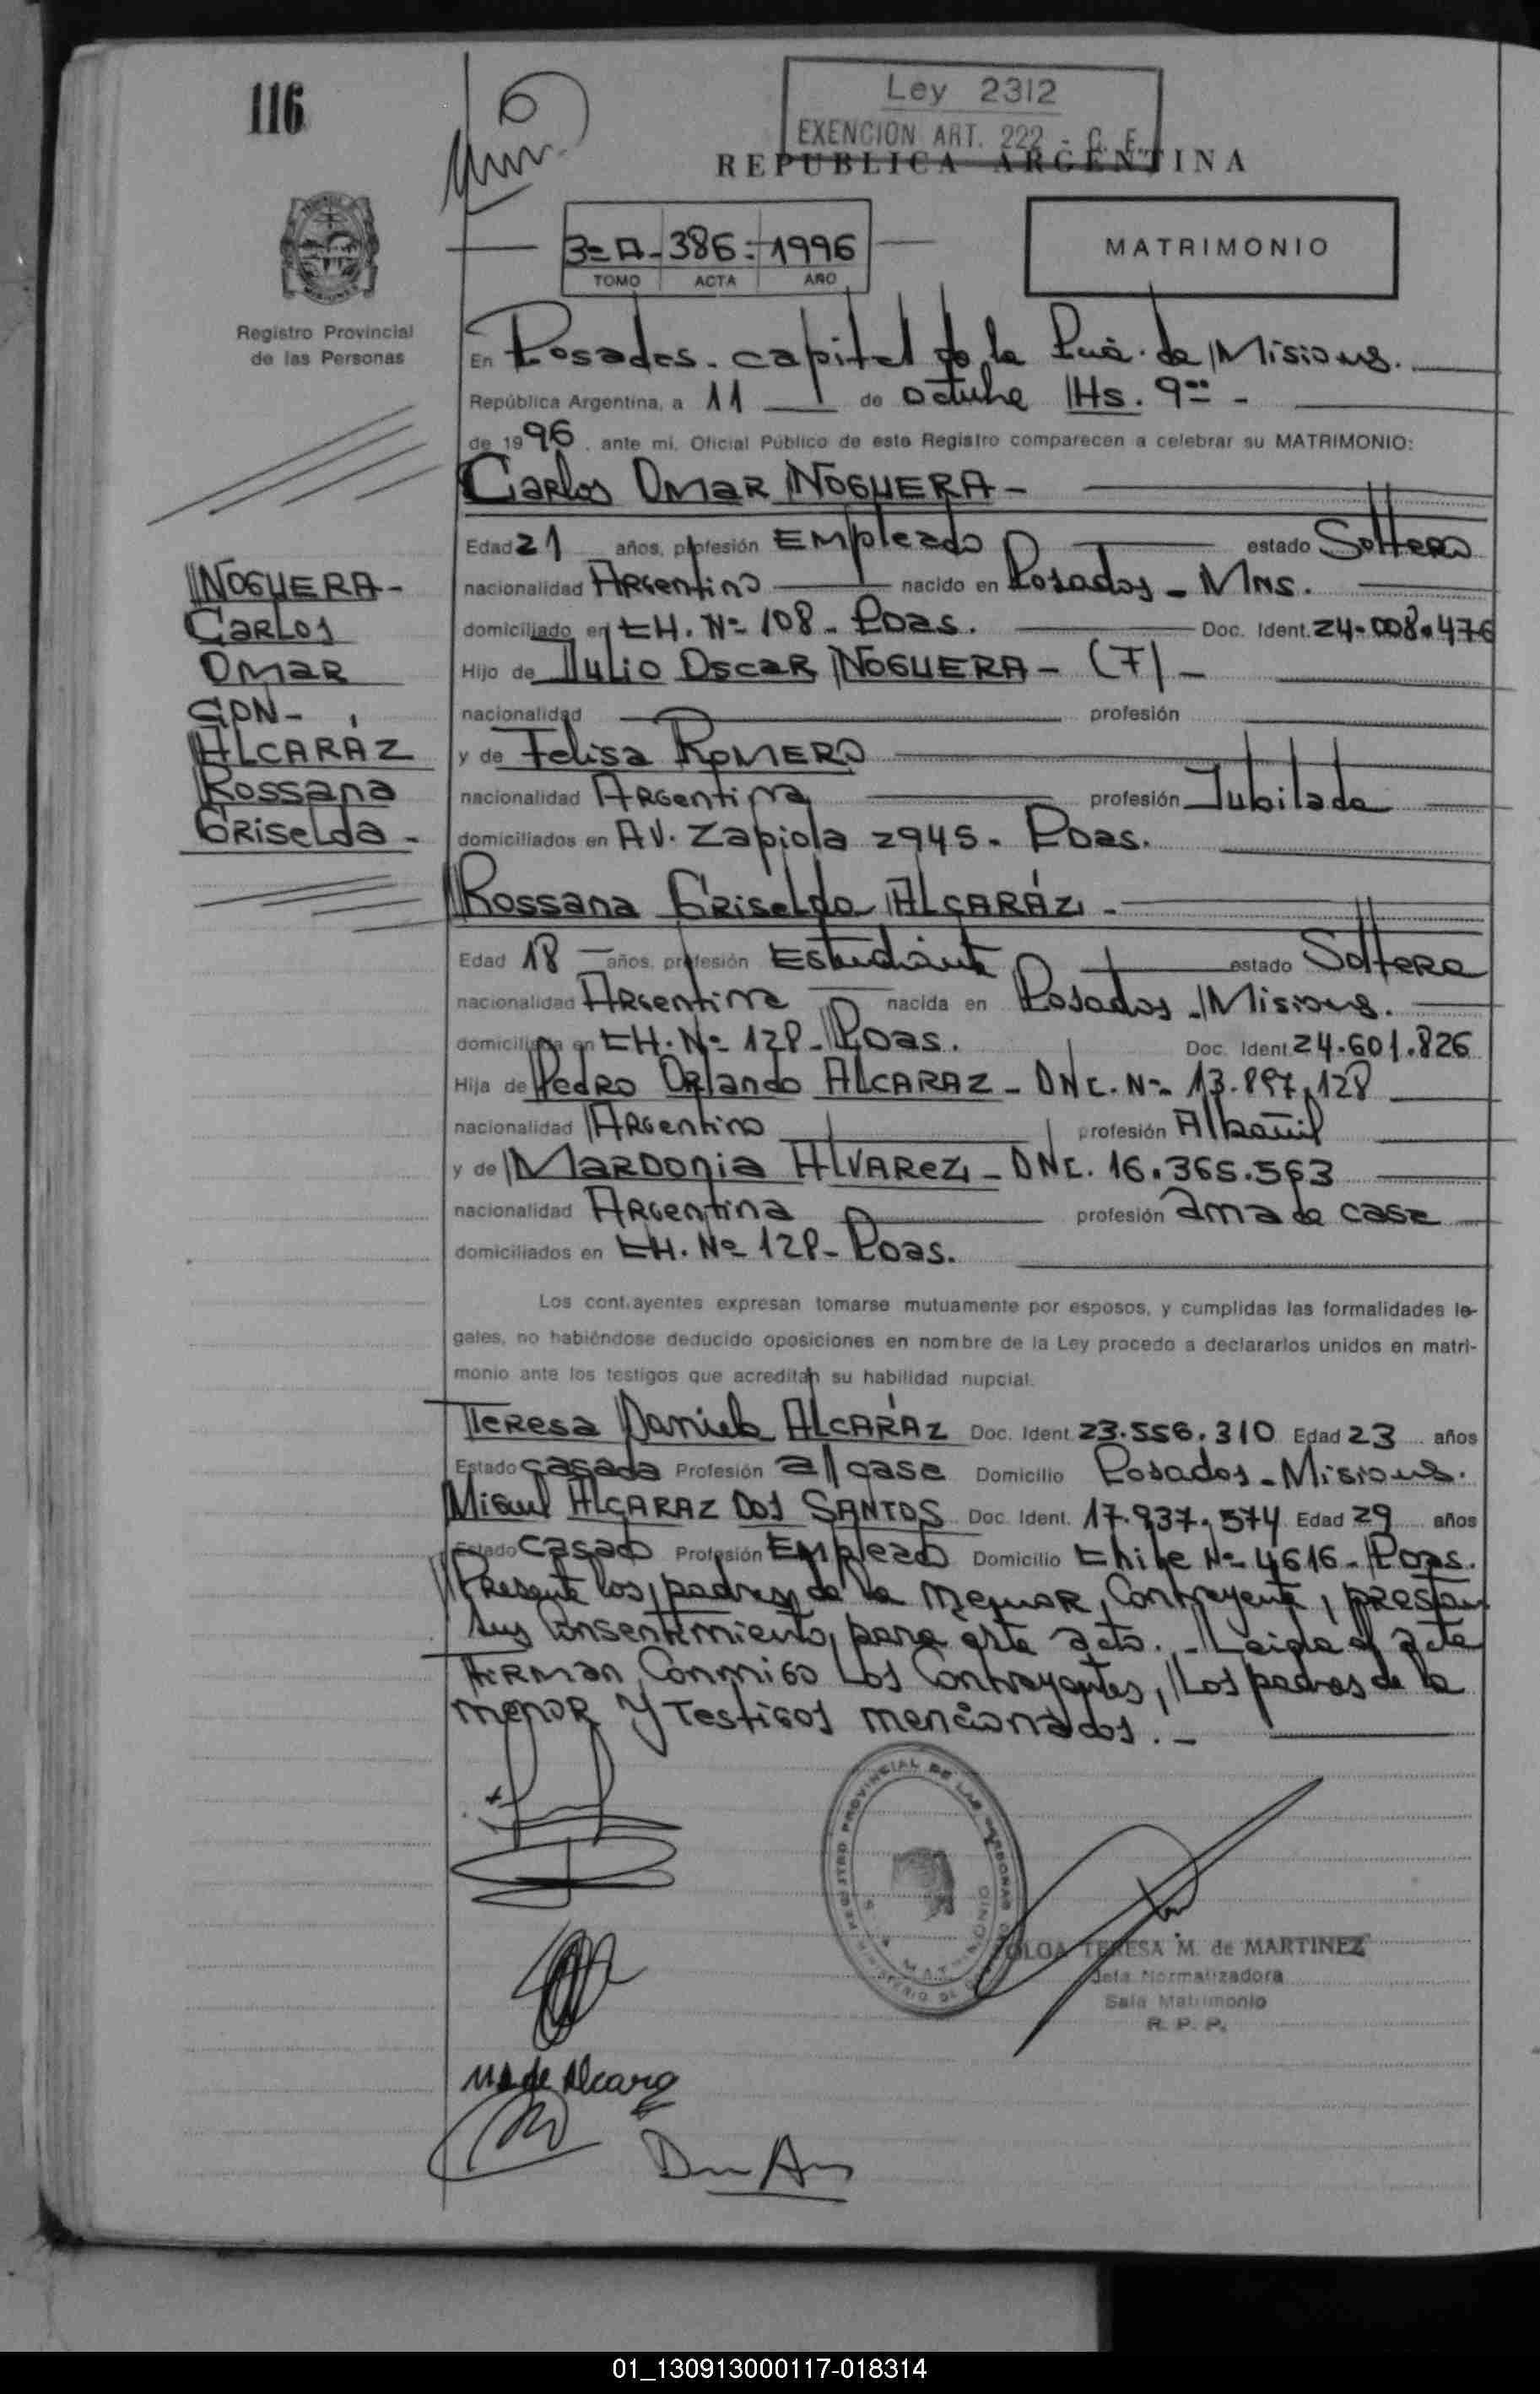 116
Ley 2312
EXENCION ART. 222 - C. F.
REPUBLICA ARGENTINA
3=A- 386=1996
TOMO ACTA AÑO
MATRIMONIO
Registro Provincial
de las Personas
En Posadas. capital de la Pcia. de Misiones.
República Argentina, a 11 de octubre Hs. 9
de 1996, ante mi, Oficial Público de este Registro comparecen a celebrar su MATRIMONIO:
Carlos Omar NOGUERA -
Edad 21 años, profesión Empleado estado Soltero
nacionalidad Argentino nacido en Posadas - Mns.
domiciliado en CH. Nº 108 - Pdas. Doc. Ident. 24.008.476
Hijo de Julio Oscar NOGUERA - (F) -
nacionalidad profesión
y de Felisa ROMERO
nacionalidad Argentina profesión Jubilada
domiciliados en AV. Zapiola 2945 - Pdas.
NOGUERA -
Carlos
Omar
CON -
ALCARAZ
Rossana
Griselda -
Rossana Griselda ALCARÁZ -
Edad 18 años, profesión Estudiante estado Soltera
nacionalidad Argentina nacida en Posadas - Misiones.
domiciliada en CH. Nº 128 - Pdas. Doc. Ident. 24.601.826
Hija de Pedro Orlando ALCARAZ - DNI. Nº 13.897.128
nacionalidad Argentino profesión Albañil
y de Mardonia ALVAREZ - DNI. 16.365.563
nacionalidad Argentina profesión ama de casa
domiciliados en CH. Nº 128 - Pdas.
Los contrayentes expresan tomarse mutuamente por esposos, y cumplidas las formalidades le-
gales, no habiéndose deducido oposiciones en nombre de la Ley procedo a declararlos unidos en matri-
monio ante los testigos que acreditan su habilidad nupcial.
Teresa Daniela ALCARAZ Doc. Ident. 23.556.310 Edad 23 años
Estado casada Profesión a/casa Domicilio Posadas - Misiones.
Miguel ALCARAZ DOS SANTOS Doc. Ident. 17.937.574 Edad 29 años
Estado casado Profesión Empleado Domicilio Chile Nº 4616 - Pdas.
Presente los padres de la menor, Contrayente, prestan
sus consentimiento, para este acto. - Leida el acta
Firman Conmigo Los Contrayentes, Los padres de la
menor Y Testigos mencionados. -
REGISTRO PROVINCIAL DE LAS PERSONAS
OLGA TERESA M. de MARTINEZ
Jefa Normalizadora
Sala Matrimonio
R. P. P.
M A de Alcaraz
01_130913000117-018314